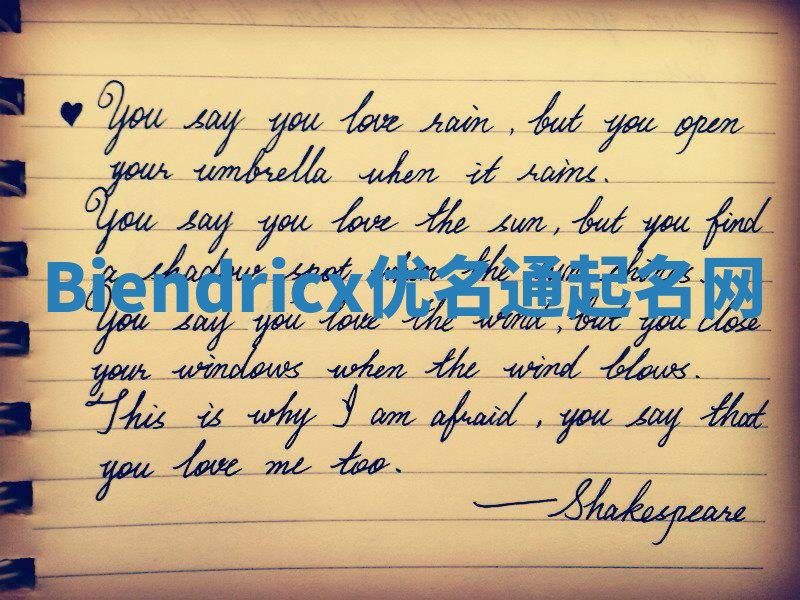 ♥ You say you love rain, but you open
your umbrella when it rains.
You say you love the sun, but you find
a shadow spot when the sun shines.
Biendricx优名通起名网
You say you love the wind, but you close
your windows when the wind blows.
This is why I am afraid, you say that
you love me too.
—Shakespeare